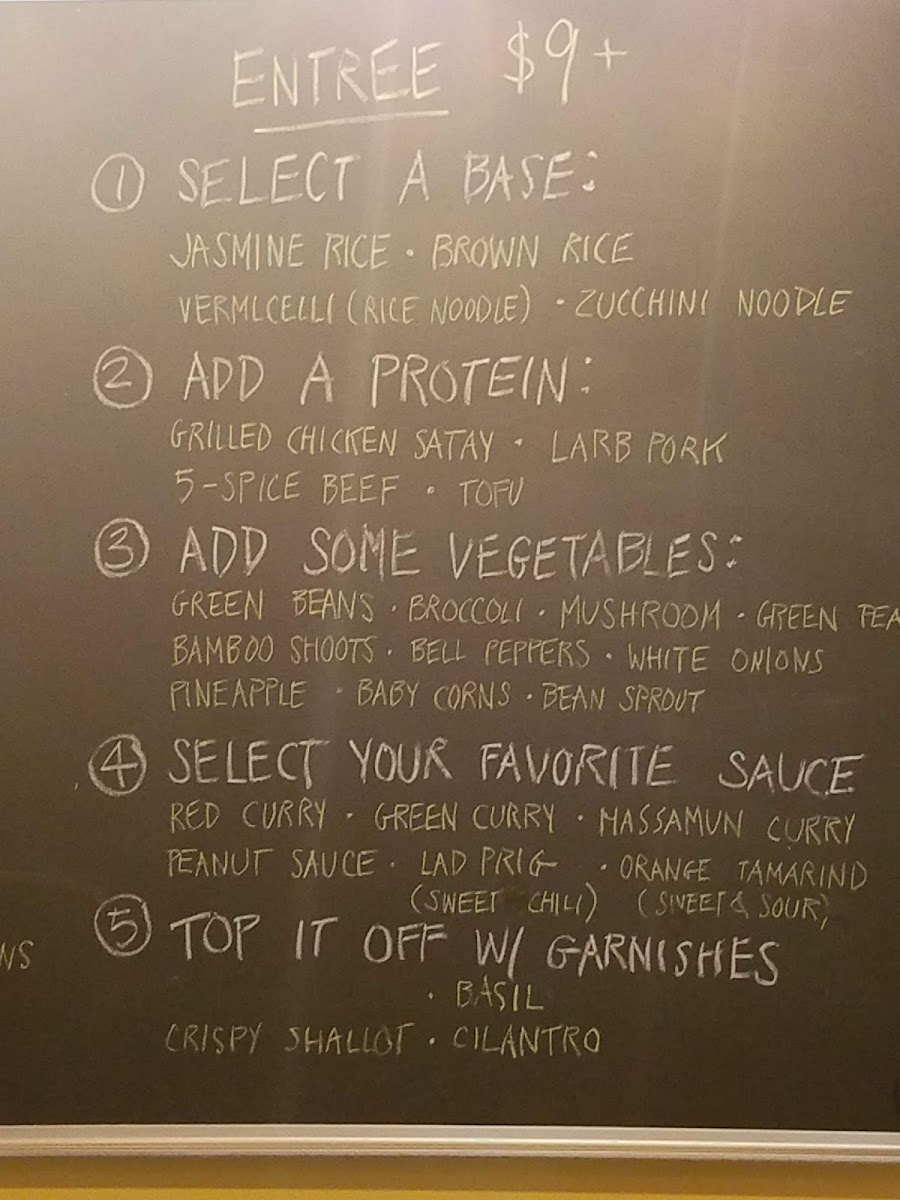 ENTRÉE $9+
① SELECT A BASE:
JASMINE RICE · BROWN RICE
VERMICELLI (RICE NOODLE) · ZUCCHINI NOODLE
② ADD A PROTEIN:
GRILLED CHICKEN SATAY · LARB PORK
5-SPICE BEEF · TOFU
③ ADD SOME VEGETABLES:
GREEN BEANS · BROCCOLI · MUSHROOM · GREEN PEA
BAMBOO SHOOTS · BELL PEPPERS · WHITE ONIONS
PINEAPPLE · BABY CORNS · BEAN SPROUT
④ SELECT YOUR FAVORITE SAUCE
RED CURRY · GREEN CURRY · MASSAMUN CURRY
PEANUT SAUCE · LAD PRIG · ORANGE TAMARIND
(SWEET CHILI) (SWEET & SOUR)
⑤ TOP IT OFF W/ GARNISHES
· BASIL
CRISPY SHALLOT · CILANTRO